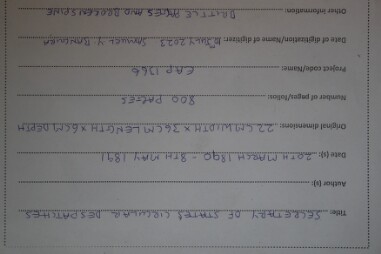 Title: SECRETARY OF STATES CIRCULAR DESPATCHES
Author (s):
Date (s): 20TH MARCH 1890 - 8TH MAY 1891
Original dimensions: 22CM WIDTH X 36CM LENGTH X 6CM DEPTH
Number of pages/folios: 800 PAGES
Project code/Name: EAP 1366
Date of digitization/Name of digitizer: JULY 2023 SAMUEL Y.
Other information: BRITTLE PAGES AND BROKEN SPINE